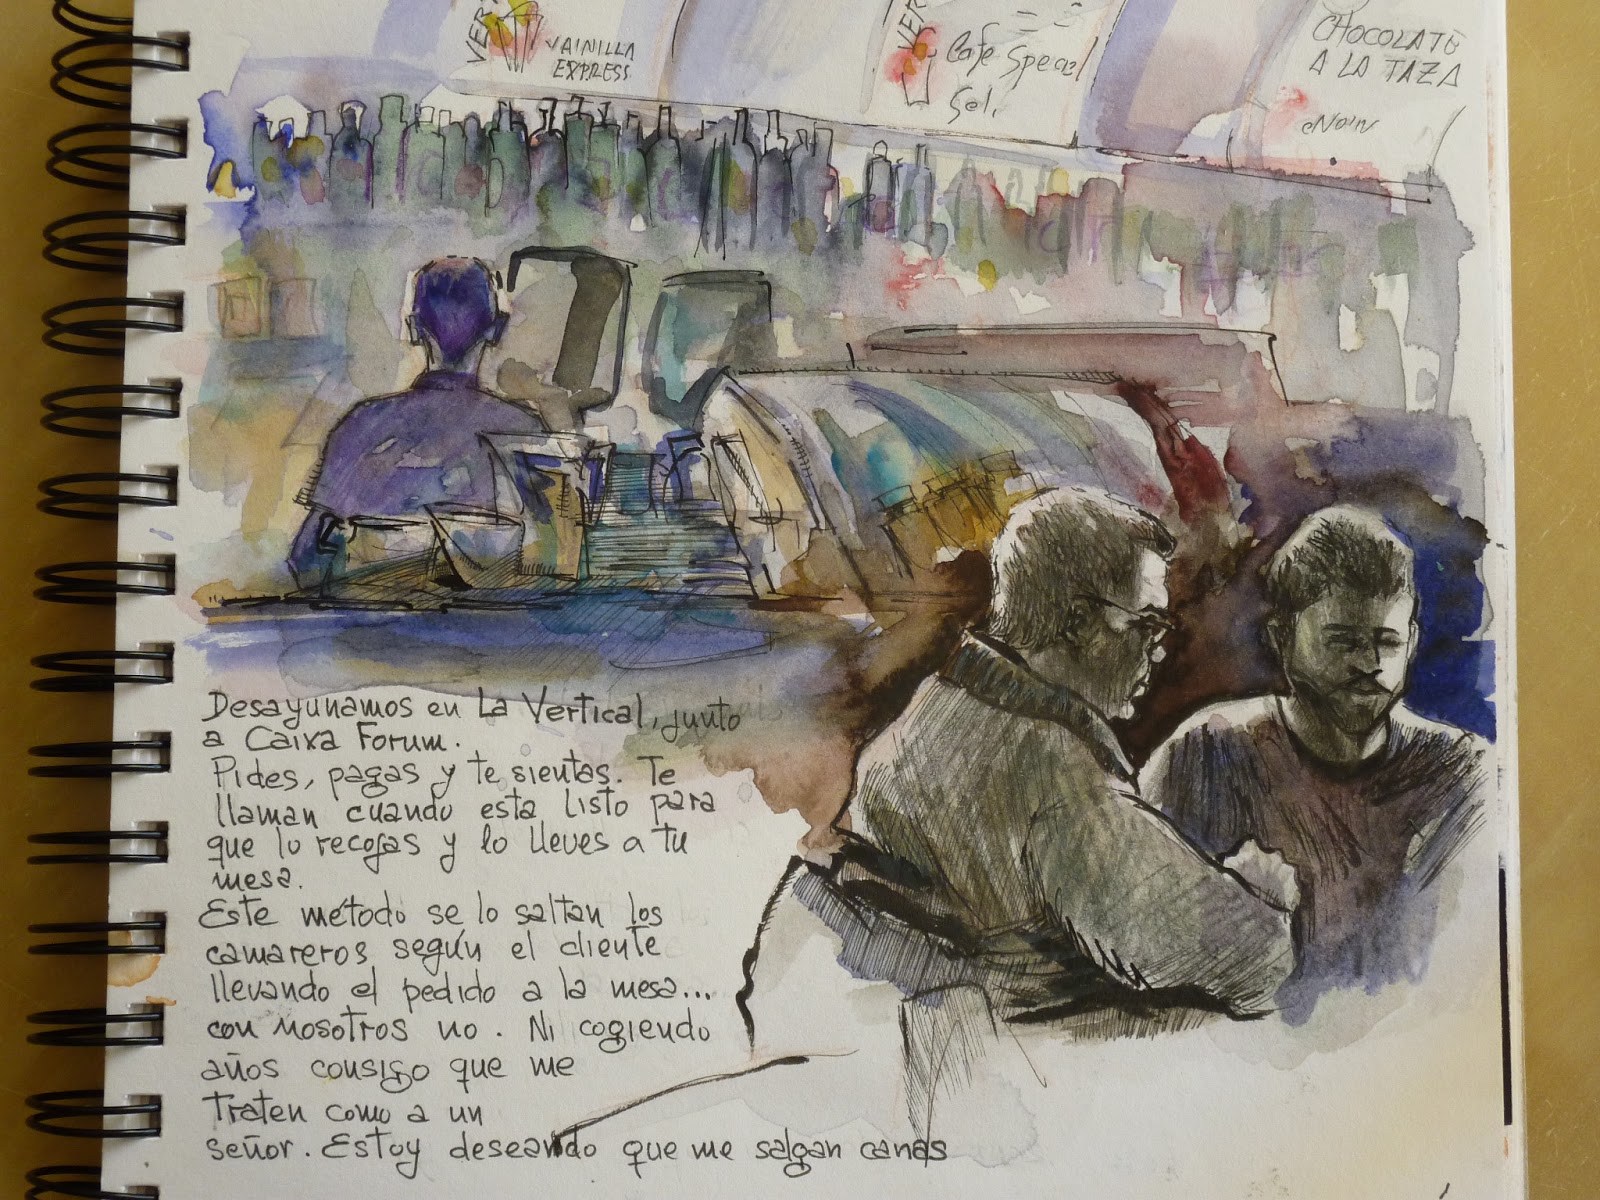 VERT
VAINILLA
EXPRESS
VER
Cafe Special
Sel.
CHOCOLATE
A LA TAZA
Desayunamos en La Vertical, junto
a Caixa Forum.
Pides, pagas y te sientas. Te
llaman cuando esta listo para
que lo recojas y lo lleves a tu
mesa.
Este método se lo saltan los
camareros según el cliente
llevando el pedido a la mesa...
con nosotros no. Ni cogiendo
años consigo que me
traten como a un
señor. Estoy deseando que me salgan canas